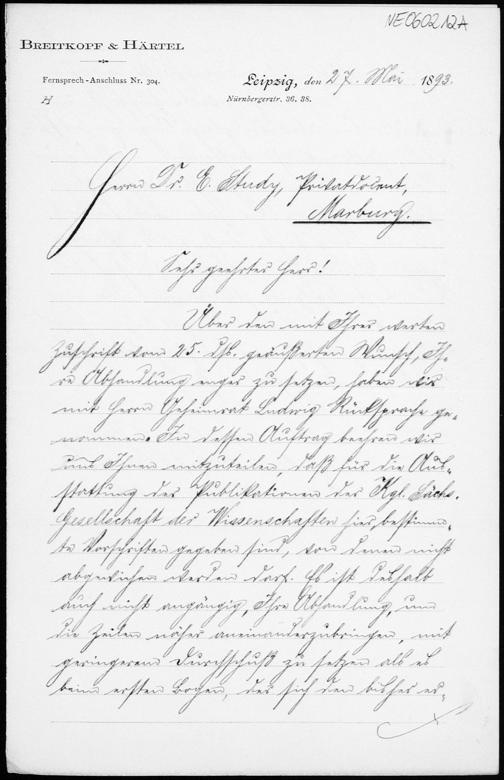 NE060212A
BREITKOPF & HÄRTEL
Fernsprech-Anschluss Nr. 304.
H
Leipzig, den 27. Mai 1893.
Nürnbergerstr. 36. 38.
Herrn Dr. E. Study, Privatdocent,
Marburg.
Sehr geehrter Herr!
Über den mit Ihrer werten
Zuschrift vom 25. ds. geäusserten Wunsch, Ih-
re Abhandlung enger zu setzen, haben wir
mit Herrn Geheimrat Ludwig Rücksprache ge-
nommen. In dessen Auftrag beehren wir
uns Ihnen mitzuteilen, daß für die Aus-
stattung der Publikationen der Kgl. Sächs.
Gesellschaft der Wissenschaften hier bestimm-
te Vorschriften gegeben sind, von denen nicht
abgewichen werden darf. Es ist deshalb
auch nicht angängig, Ihre Abhandlung, um
die Zeilen näher aneinanderzubringen, mit
geringerem Durchschuß zu setzen als es
beim ersten Bogen, der sich den bisher er-